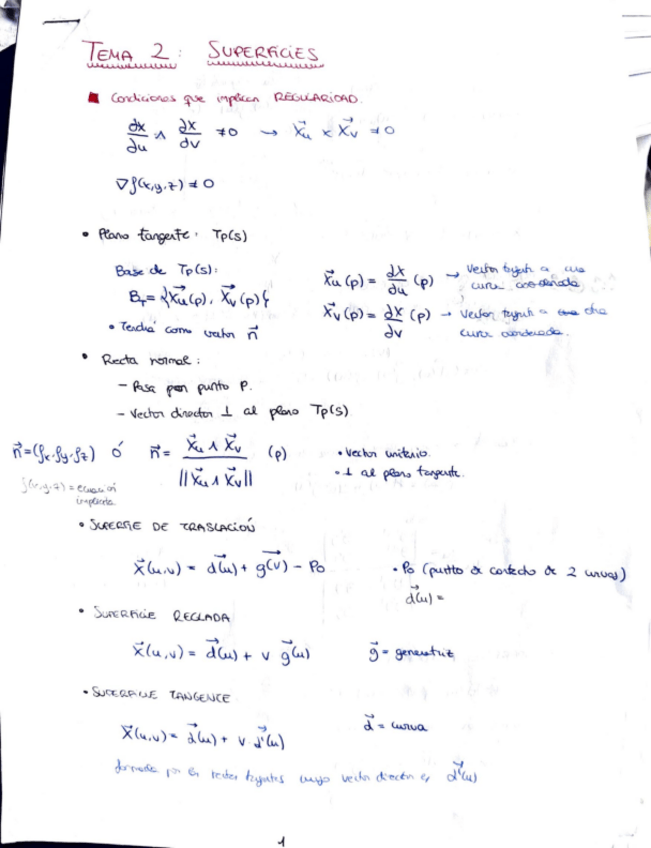 TEMA 2: SUPERFICIES
■ Condiciones que implican REGULARIDAD.
∂x/∂u ∧ ∂x/∂v ≠0 → X⃗u × X⃗v ≠0
∇f(x,y,z) ≠ 0
• Plano tangente: Tp(s)
Base de Tp(s):
BT = {X⃗u(p), X⃗v(p)}
• Tendrá como vector n⃗
X⃗u(p) = ∂x/∂u (p) → Vector a una curva coordenada
X⃗v(p) = ∂x/∂v (p) → Vector a otra curva coordenada.
• Recta normal:
- Pasa por punto P.
- Vector director ⊥ al plano Tp(s)
n⃗=(fx, fy, fz) ó n⃗ = X⃗u ∧ X⃗v / ||X⃗u ∧ X⃗v|| (p)
f(x,y,z) = ecuación implícita
• Vector unitario.
• ⊥ al plano tangente.
• SUPERFICIE DE TRASLACIÓN
X⃗(u,v) = d⃗(u) + g⃗(v) - P0
• P0 (punto de contacto de 2 curvas)
d⃗(u) =
• SUPERFICIE REGLADA
X⃗(u,v) = d⃗(u) + v g⃗(u)
g⃗ = generatriz
• SUPERFICIE TANGENTE
X⃗(u,v) = d⃗(u) + v d⃗'(u)
d⃗ = curva
formada por rectas tangentes cuyo vector director es d⃗'(u)
1